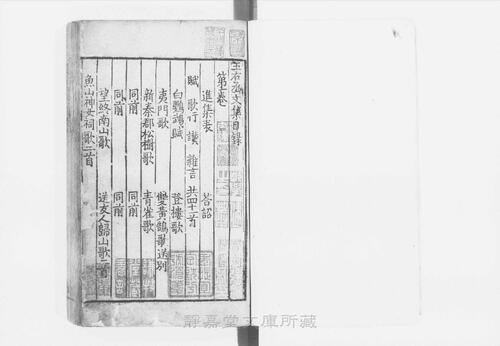 王右丞文集目録
第一卷
進集表 答詔
賦 歌行 讃 雜言 共四十二首
白鸚鵡賦 登樓歌
夷門歌 雙黄鵠歌送別
新秦郡松樹歌 青雀歌
同前 同前
同前 同前
望終南山歌 送友人歸山歌二首
魚山神女祠歌二首
靜嘉堂文庫所藏